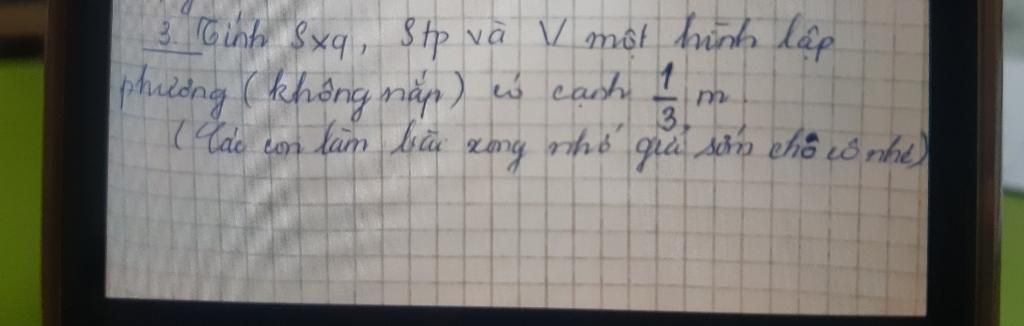 3. Tính Sxq, Stp và V một hình lập
phương (không nắp) có cạnh 1/3 m.
(Các con làm bài xong nhớ gửi sớm cho cô nhé)